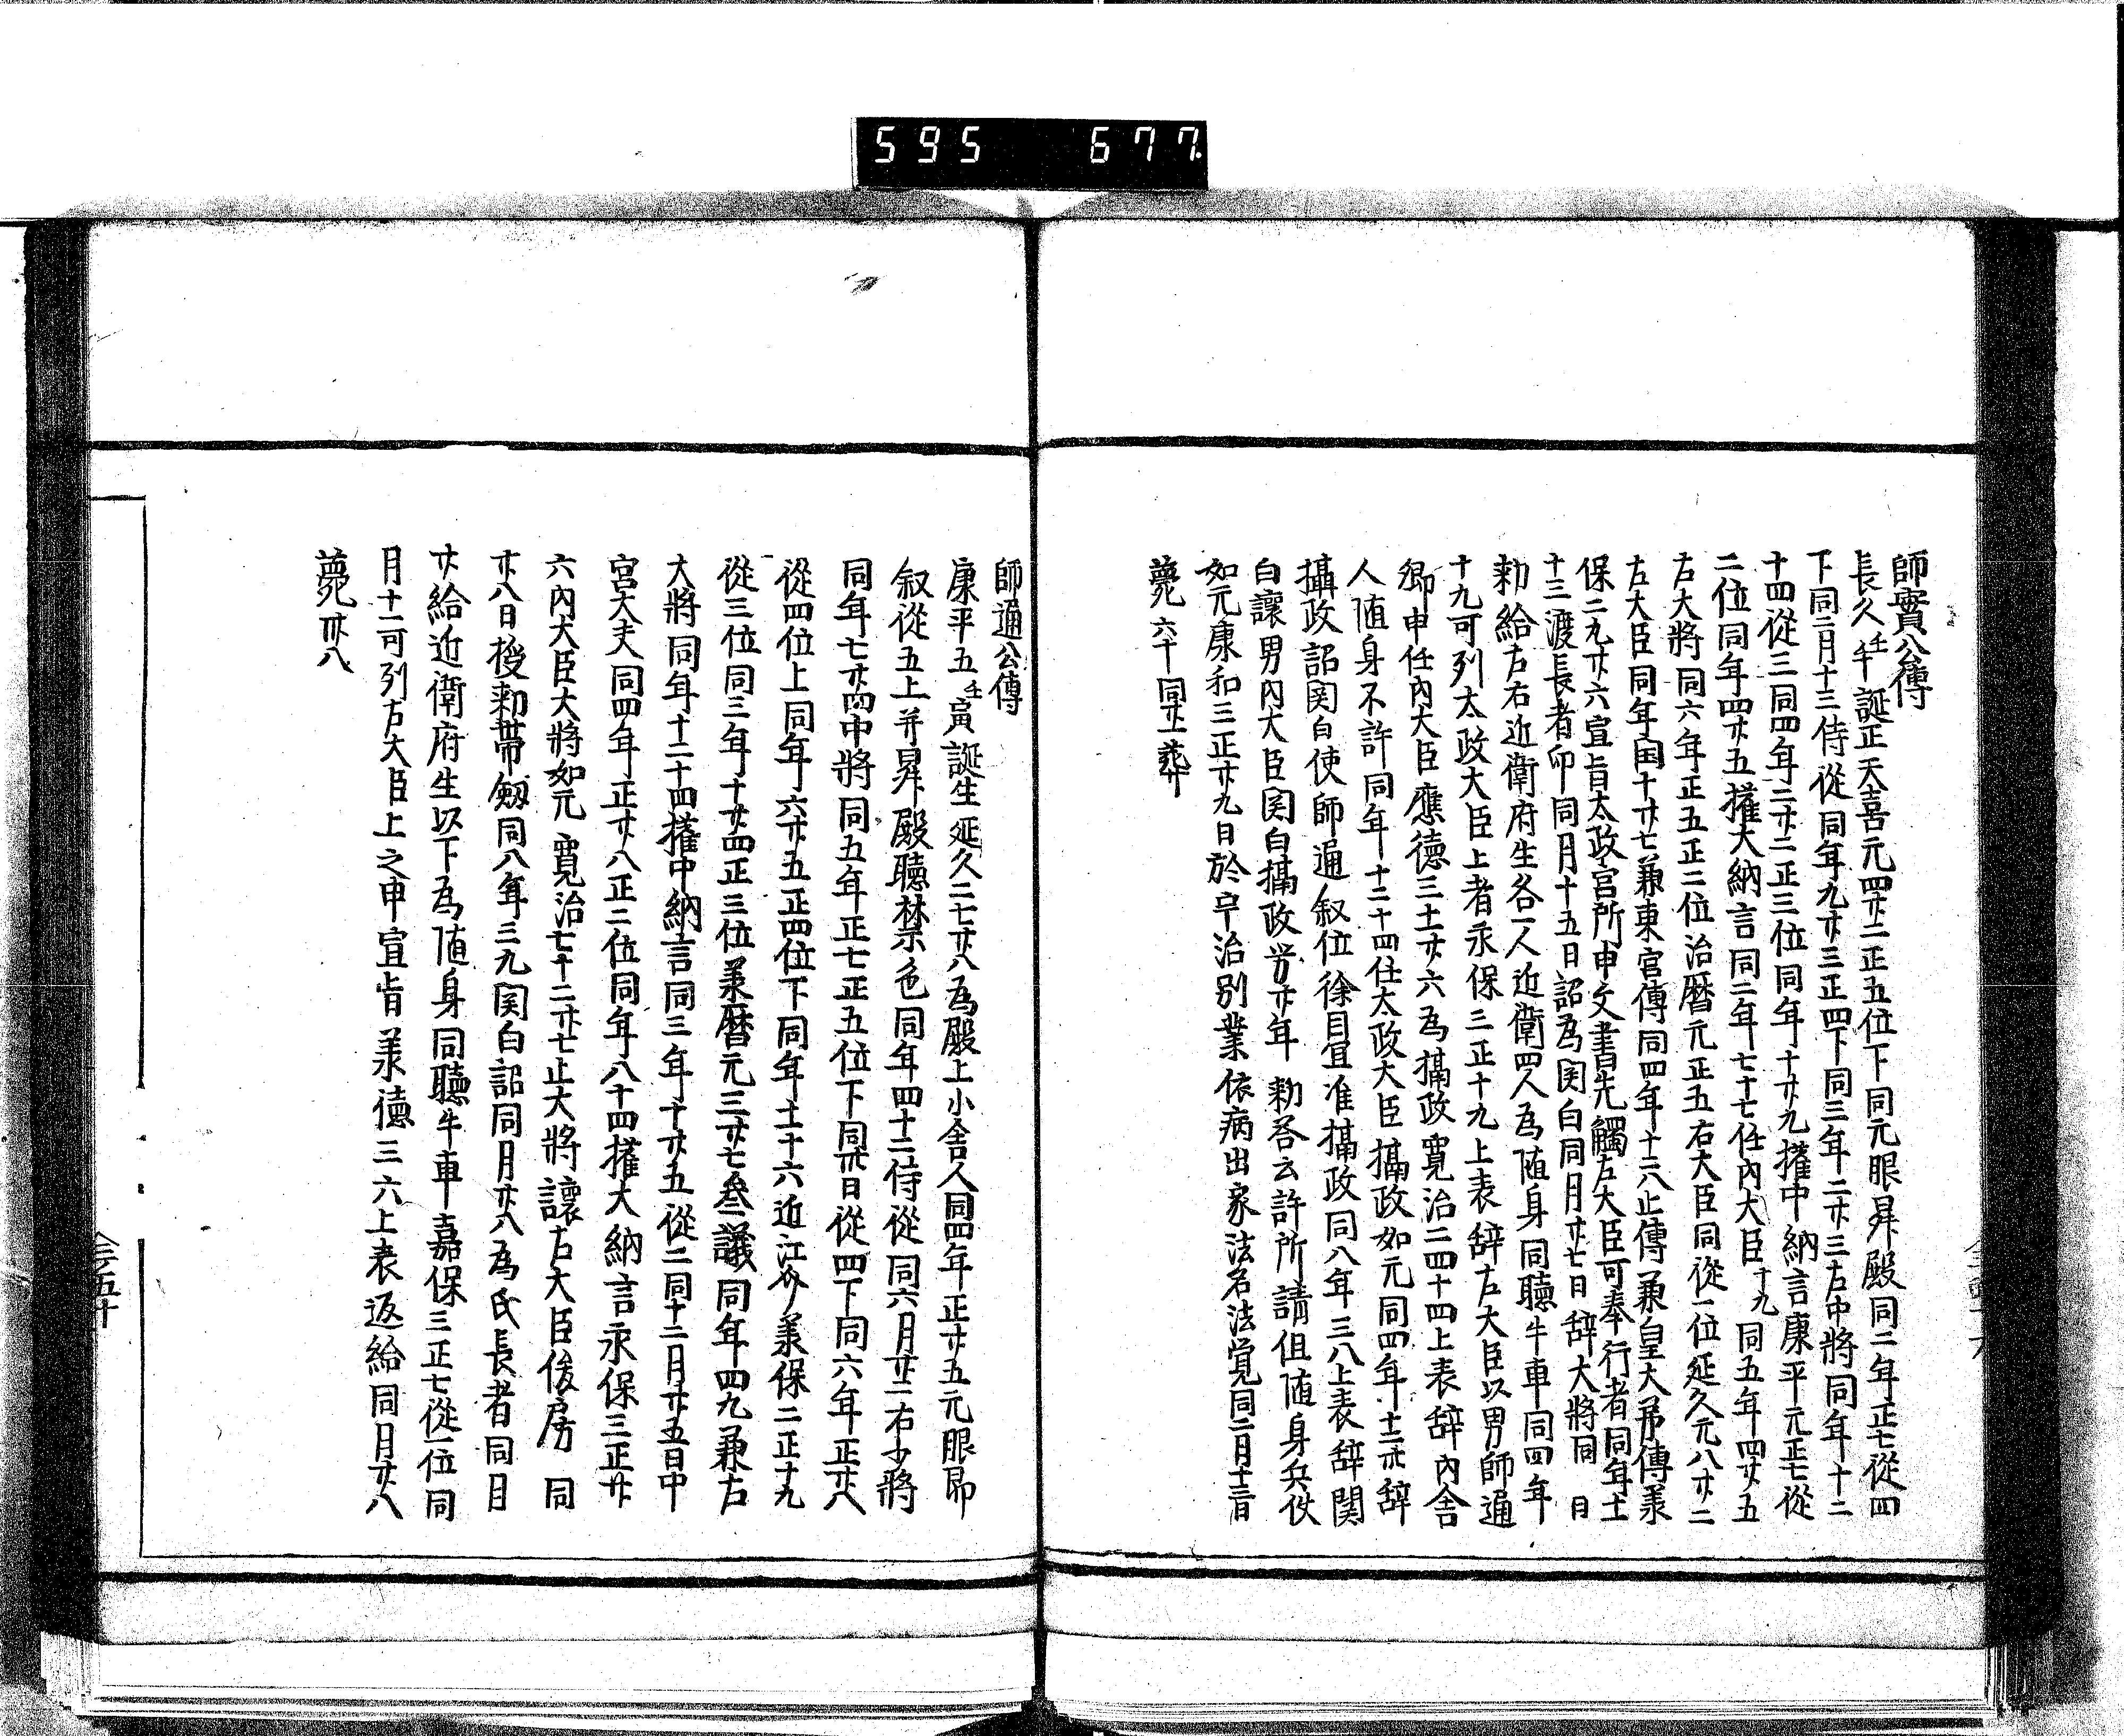 595 677
師實公傳
長久壬午誕正天喜元四廿二正五位下同元服昇殿同二年正七從四
下同二月十三侍從同年九廿三正四下同三年二廿三左中將同年十二
十四從三同四年二廿二正三位同年十廿九權中納言康平元正七從
二位同年四廿五權大納言同二年七十七任內大臣十九同五年四廿五
右大將同六年正五正二位治曆元正五右大臣同從一位延久元八廿二
左大臣同年閏十廿七兼東宮傳同四年十二八止傳兼皇太弟傳羕
保二九廿六宣旨太政官所申文書先觸左大臣可奉行者同年十
十三渡長者印同月十五日詔為関白同月廿七日辞大將同 日
勅給左右近衛府生各一人近衛四人為随身同聽牛車同四年
十九可列太政大臣上者永保三正十九上表辞左大臣以男師通
卿申任內大臣應德三十一廿六為攝政寬治二四十四上表辞內舎
人随身不許同年十二十四任太政大臣攝政如元同四年十二廿辞
攝政詔関白使師通叙位徐目宜准攝政同八年三八上表辞関
白讓男內大臣関白攝政労廿年 勅答云許所請但随身兵仗
如元康和三正廿九日於宇治別業依病出家法名法覚同二月十三日
薨六十同廿一葬
師通公傳
康平五壬寅誕生延久二七廿八為殿上小舎人同四年正廿五元服即
叙從五上并昇殿聽禁色同年四十二侍從同六月廿二右少將
同年七廿四中將同五年正七正五位下同廿日從四下同六年正廿八
從四位上同年六廿五正四位下同年十二十六近江介羕保二正十九
從三位同三年十廿四正三位羕曆元三廿七叄議同年四九兼左
大將同年十二十四權中納言同三年十廿五從二同十二月廿五日中
宮大夫同四年正廿八正二位同年八十四權大納言永保三正廿
六內大臣大將如元 寬治七十二廿七止大將讓右大臣俊房 同
廿八日授勅帶劔同八年三九関白詔同月廿八為氏長者同月
廿給近衛府生以下為随身同聽牛車嘉保三正七從一位同
月十一可列左大臣上之申宣旨羕德三六上表返給同月廿八
薨卅八